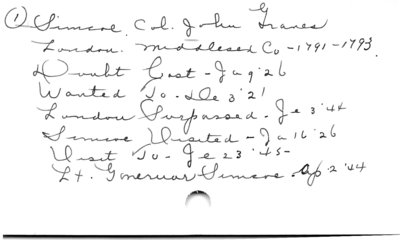 ① Simcoe, Col. John Graves
London. Middlesex Co - 1791-1793.
Doubt Cast - Ja 9 '26
Wanted To - De 3 '21
London Surpassed - Je 3 '44
Simcoe Visited - Ja 16 '26
Visit To - Je 23 '45 -
Lt. Governor Simcoe - Ap. 2 '44